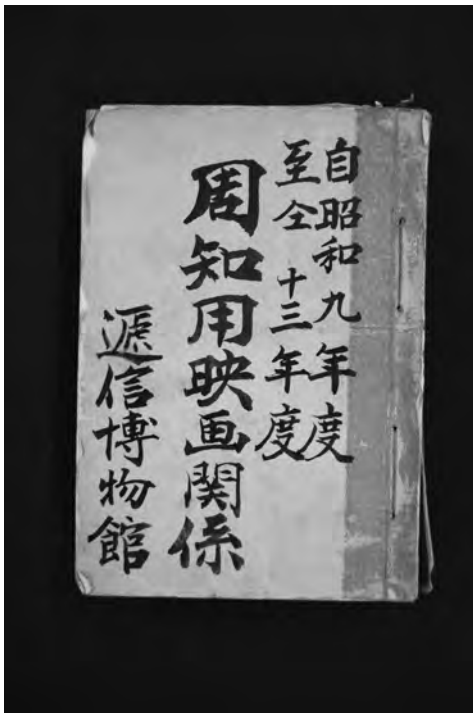 自昭和九年度
至仝十三年度
周知用映画関係
逓信博物館